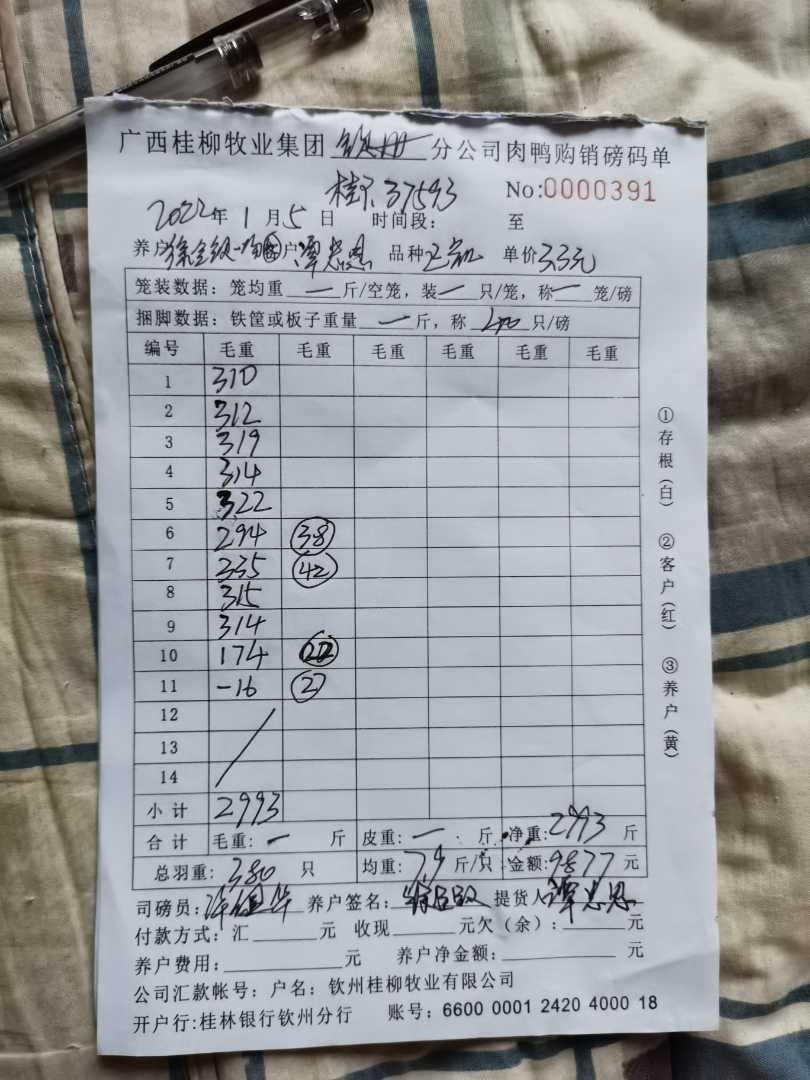 广西桂柳牧业集团 钦州 分公司肉鸭购销磅码单
37593 No:0000391
2022年1月5日 时间段: 至
养户 客户 谭忠恩 品种 单价3.3元
笼装数据: 笼均重 一 斤/空笼, 装 一 只/笼, 称 一 笼/磅
捆脚数据: 铁筐或板子重量 一 斤, 称 40 只/磅
编号 毛重 毛重 毛重 毛重 毛重 毛重
1 310
2 312
3 319
4 314
5 322
6 294 38
7 335 42
8 315
9 314
10 174 22
11 -16 2
12
13
14
小计 2993
合计 毛重: 一 斤 皮重: 一 斤 净重: 2993 斤
总羽重: 380 只 均重: 7.9 斤/只 金额: 9877 元
司磅员: 养户签名: 提货人 谭忠恩
付款方式: 汇 元 收现 元欠(余): 元
养户费用: 元 养户净金额: 元
公司汇款帐号: 户名: 钦州桂柳牧业有限公司
开户行:桂林银行钦州分行 账号: 6600 0001 2420 4000 18
①存根(白) ②客户(红) ③养户(黄)